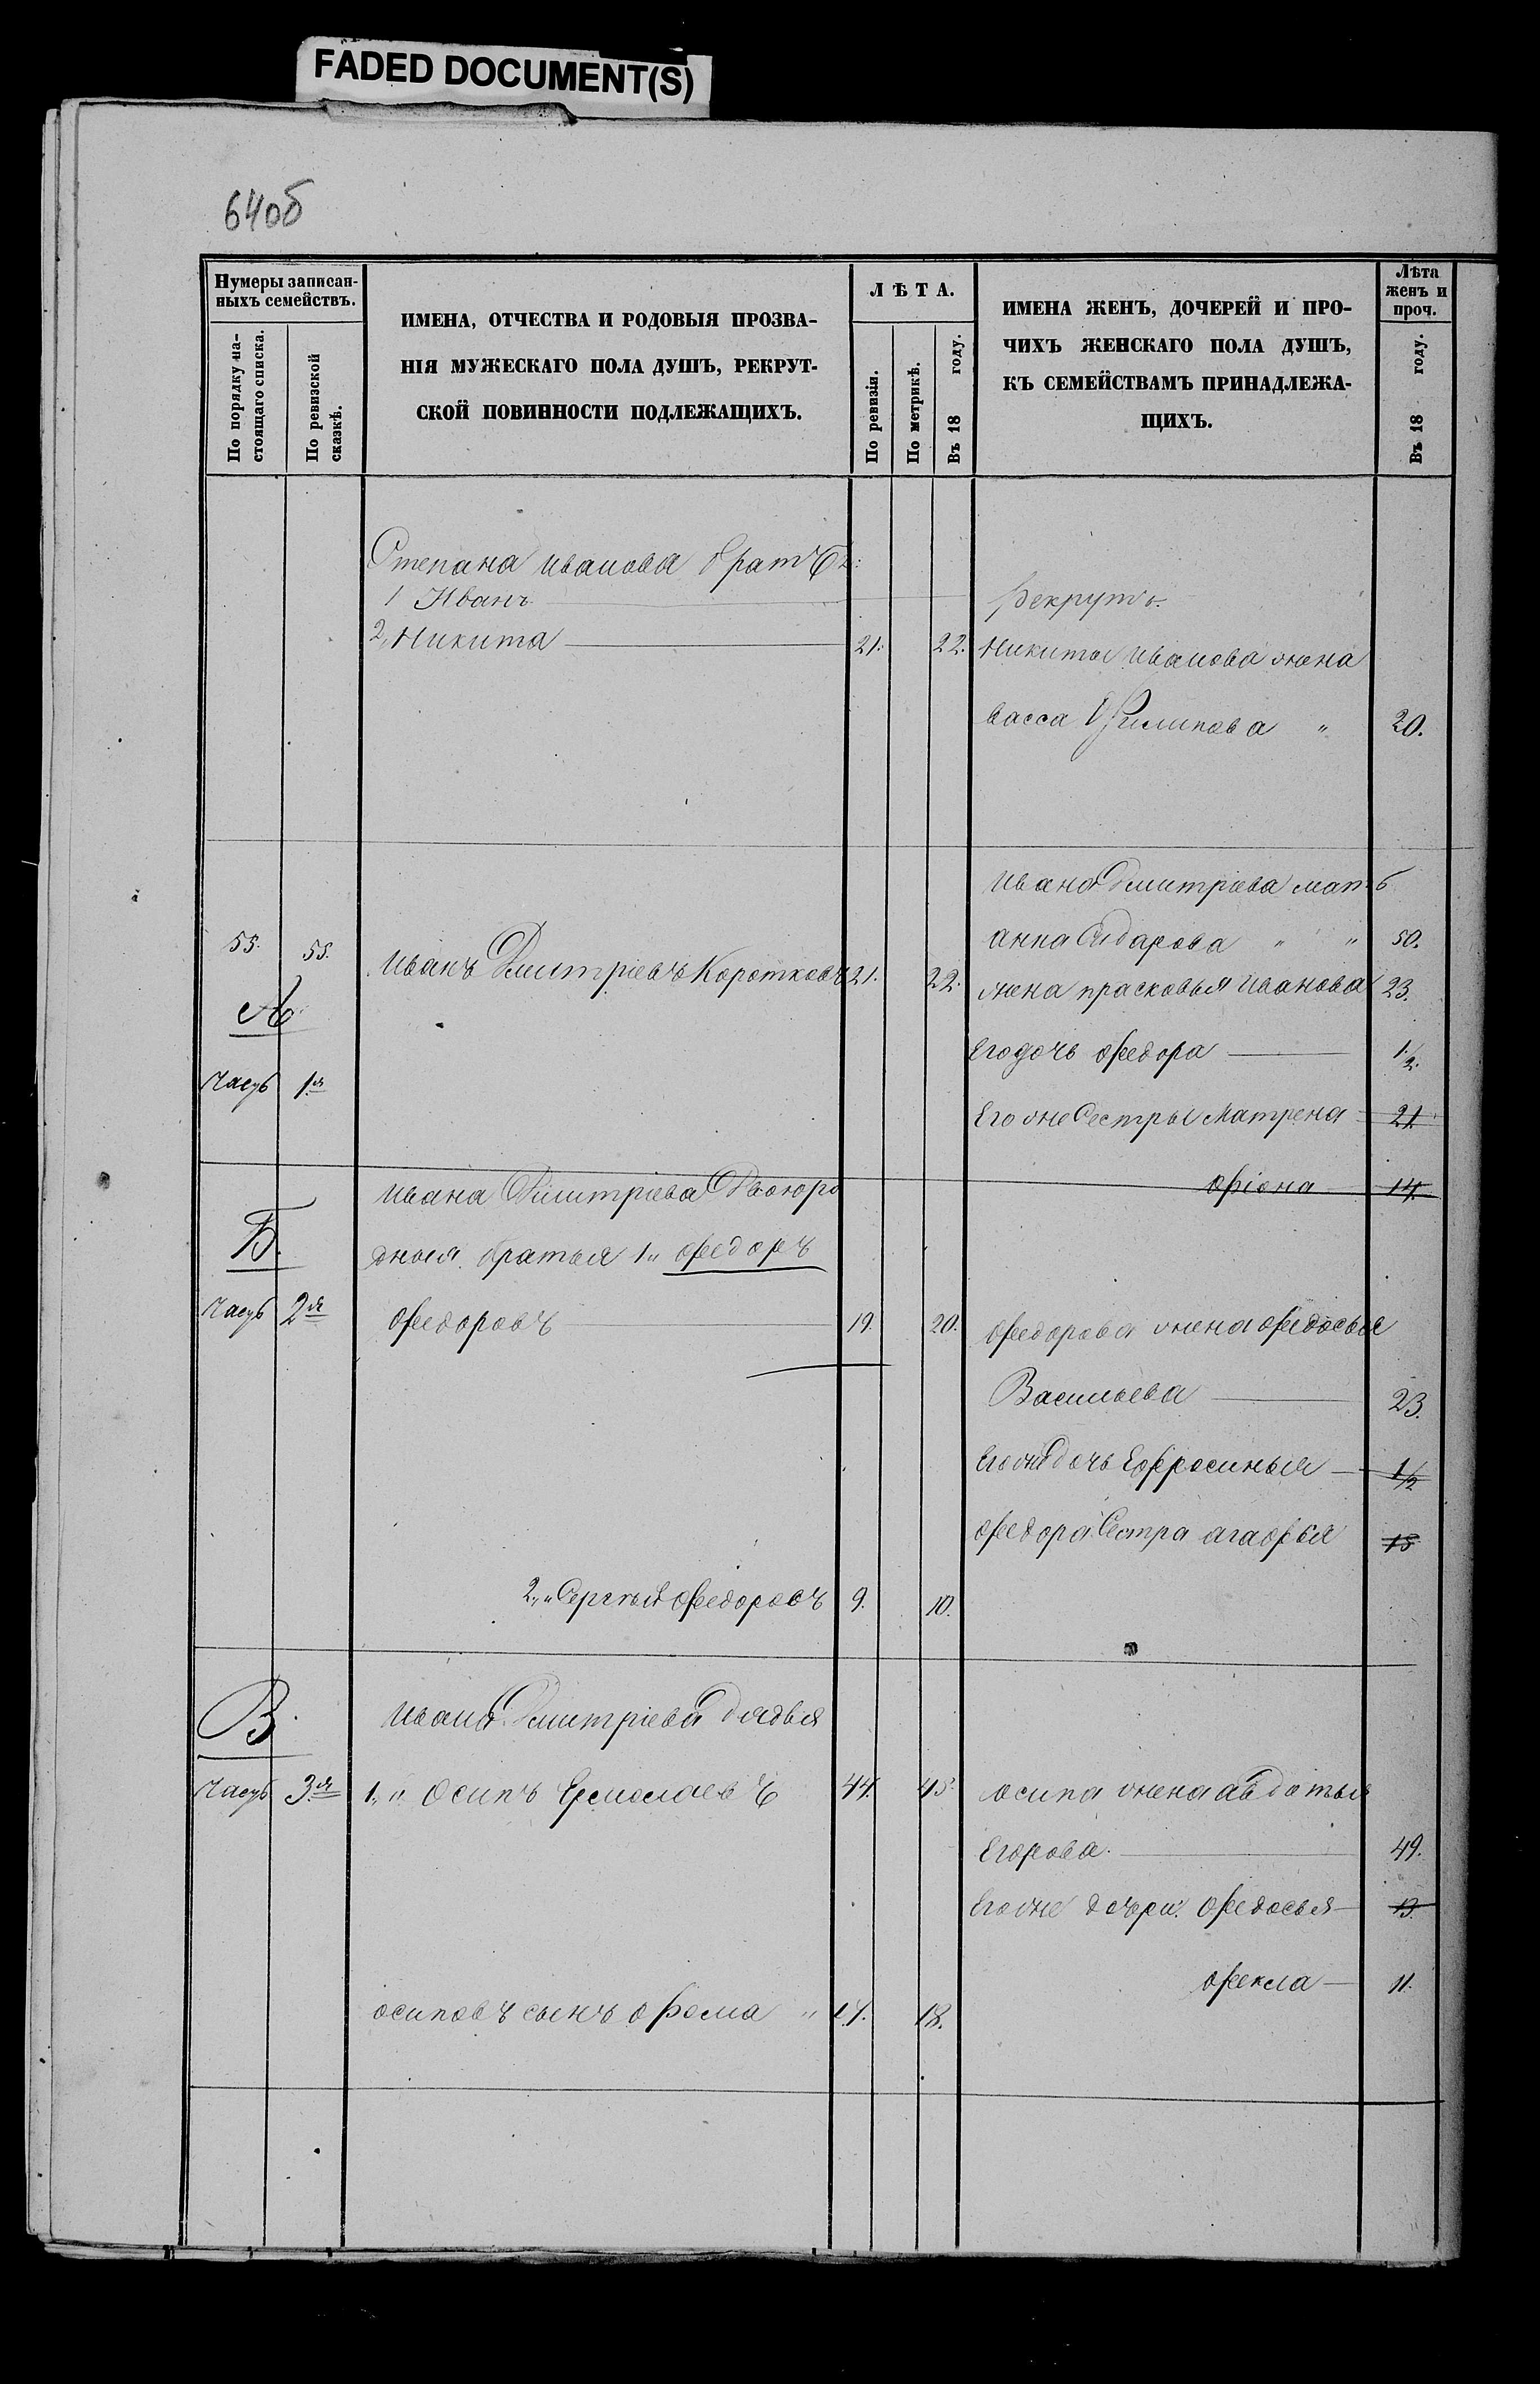 FADED DOCUMENT(S)
640б
Нумеры записан-
ныхъ семействъ.
По порядку на-
стоящаго списка.
По ревизской
сказкѣ.
ИМЕНА, ОТЧЕСТВА И РОДОВЫЯ ПРОЗВА-
НІЯ МУЖЕСКАГО ПОЛА ДУШЪ, РЕКРУТ-
СКОЙ ПОВИННОСТИ ПОДЛЕЖАЩИХЪ.
ЛѢТА.
По ревизіи.
По метрикѣ.
Въ 18 году.
ИМЕНА ЖЕНЪ, ДОЧЕРЕЙ И ПРО-
ЧИХЪ ЖЕНСКАГО ПОЛА ДУШЪ,
КЪ СЕМЕЙСТВАМЪ ПРИНАДЛЕЖА-
ЩИХЪ.
Лѣта
женъ и
проч.
Въ 18 году.
Степана иванова братъ:
1 Иванъ рекрутъ.
2,, Никита 21. 22. Никиты иванова жена
васса Филипова " 20.
ивана Дмитріева мать
анна Сидарова " " 50.
55. 55. иванъ Дмитріевъ Коротковъ 21. 22. жена прасковья иванова 23.
А.
Его дочь федора 1/2.
Часть 1я
Его же Сестры Матрена 21.
ивана Дмитріева Двоюро фіона 14.
Б.
дныя братья 1,, федоръ
Часть 2я федоровъ 19. 20. федорова жена федосья
Васильева 23.
Его же дочь Ефросинья 1/2
федора Сестра агафья 18
2,, Сергѣй федоровъ 9. 10.
В. ивана Дмитріева дядья
Часть 3я 1,, Осипъ Ермолаевъ 44. 45. осипа жена авдотья
Егорова. 49.
Его же дочери: федосья 13.
фекла 11.
осиповъ сынъ фома " 17. 18.